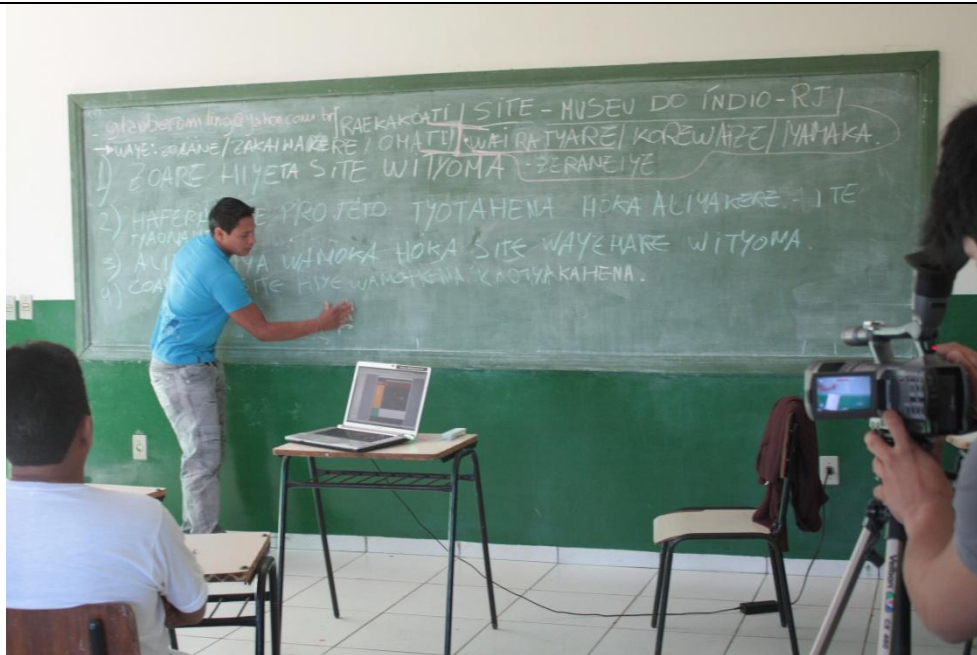 RAEKAKOATI / SITE - MUSEU DO ÍNDIO - RJ /
WAYE: ZORANE / ZAKAIHAKERE / OMATI WAIRATYARE / KOREWAIZE / IYAMAKA.
1) ZOARE HIYETA SITE WITYOMA - ZERANEIYE
2) PROJETO TYOTAHENA HOKA ALIYAKERE - ITE
TYAONA
3) WAMOKA HOKA SITE WAYEHARE WITYOMA.
4) SITE HIYE WAMOHENA KAOTYAKAHENA.